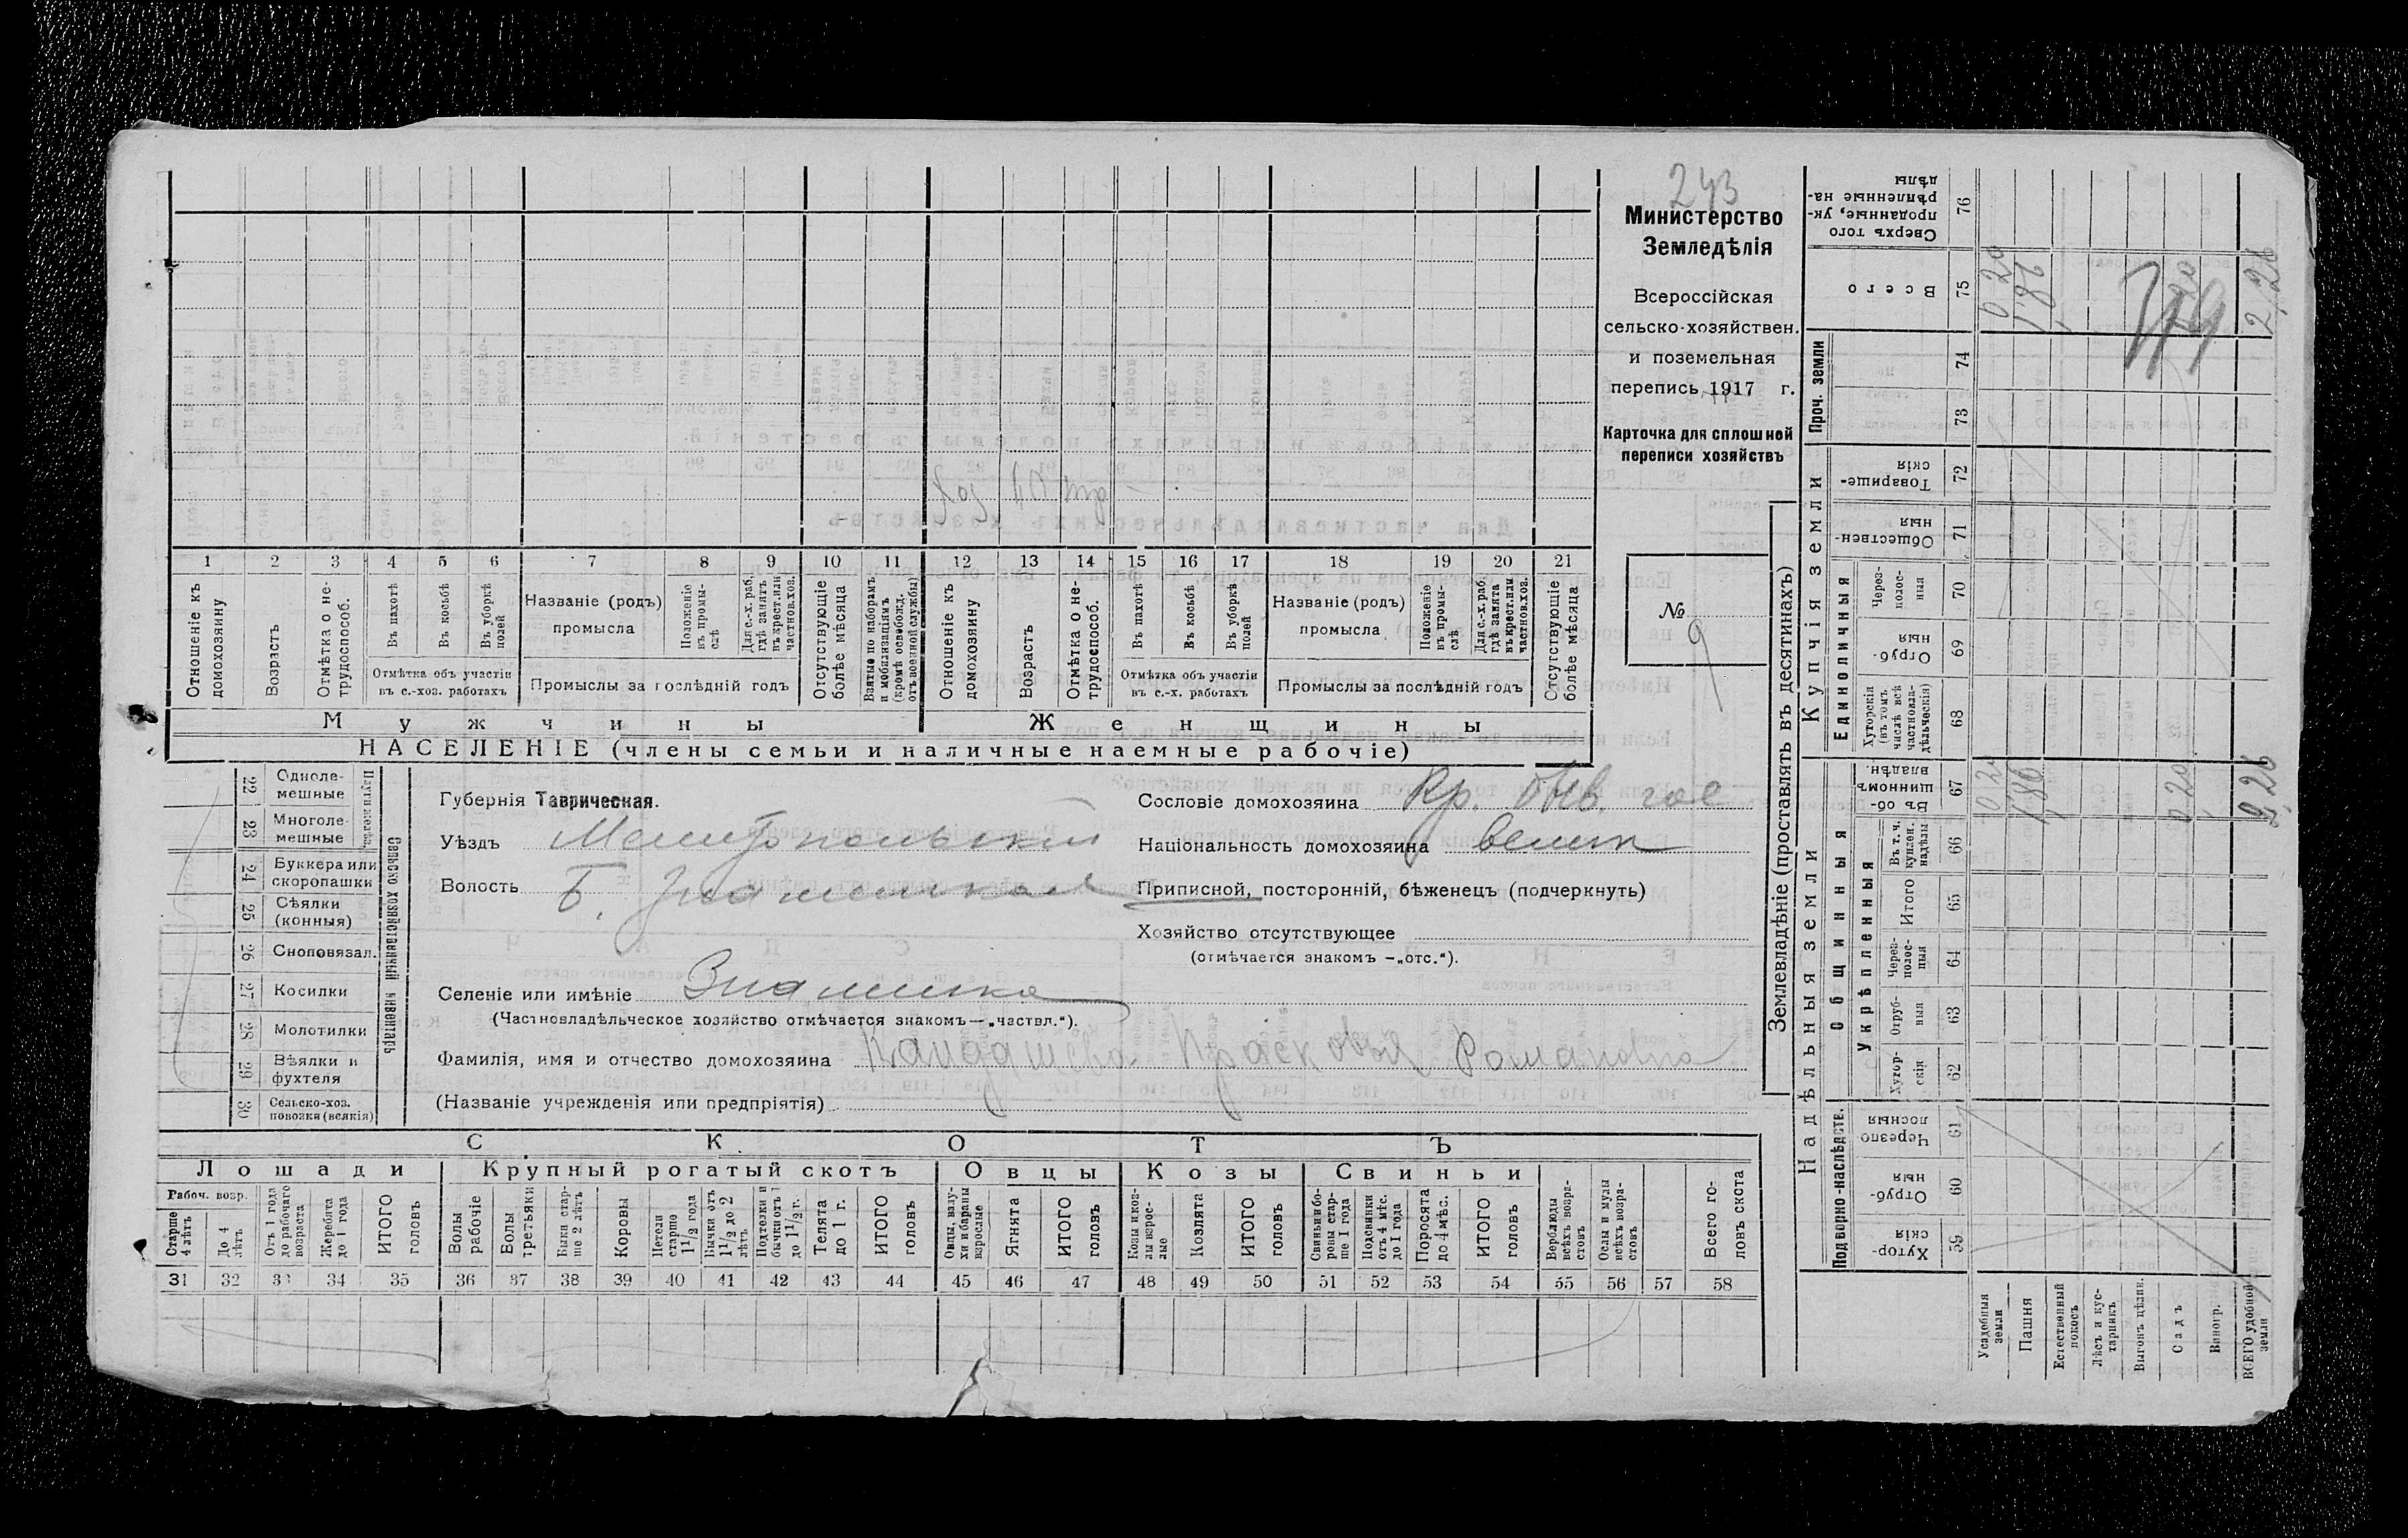 243
Министерство
Земледѣлія
Всероссійская
сельско-хозяйствен.
и поземельная
перепись 1917 г.
Карточка для сплошной
переписи хозяйствъ
№ 9
хоз 40 тр
1 2 3 4 5 6 7 8 9 10 11 12 13 14 15 16 17 18 19 20 21
Отношеніе къ домохозяину
Возрастъ
Отмѣтка о не-трудоспособ.
Въ пахотѣ
Въ косьбѣ
Въ уборкѣ полей
Отмѣтка объ участіи въ с.-хоз. работахъ
Названіе (родъ) промысла
Положеніе въ промы-слѣ
Для с.-х. раб. гдѣ занятъ въ крест. или частнов. хоз.
Промыслы за послѣдній годъ
Отсутствующіе болѣе мѣсяца
Взятые по наборамъ и мобилизаціямъ (кромѣ освобожд. отъ военной службы)
Отношеніе къ домохозяину
Возрастъ
Отмѣтка о не-трудоспособ.
Въ пахотѣ
Въ косьбѣ
Въ уборкѣ полей
Отмѣтка объ участіи въ с.-х. работахъ
Названіе (родъ) промысла
Положеніе въ промы-слѣ
Для с.-х. раб. гдѣ занята въ крест. или частнов. хоз.
Промыслы за послѣдній годъ
Отсутствующіе болѣе мѣсяца
Мужчины Женщины
НАСЕЛЕНІЕ (члены семьи и наличные наемные рабочіе)
22 Одноле-мешные
23 Многоле-мешные
Плуги желѣз.
24 Буккера или скоропашки
25 Сѣялки (конныя)
26 Сноповязал.
27 Косилки
28 Молотилки
29 Вѣялки и фухтеля
30 Сельско-хоз. повозки (всякія)
Сельско хозяйственный инвентарь
Губернія Таврическая.
Уѣздъ Мелитопольский
Волость Б. Знаменская
Селеніе или имѣніе Знаменка
(Частновладѣльческое хозяйство отмѣчается знакомъ—„частвл.“).
Фамилія, имя и отчество домохозяина Кандашева Прасковья Романовна
(Названіе учрежденія или предпріятія)
Сословіе домохозяина Кр. быв. гос
Національность домохозяина велик
Приписной, посторонній, бѣженецъ (подчеркнуть)
Хозяйство отсутствующее
(отмѣчается знакомъ —„отс.“).
СКОТЪ
Лошади Крупный рогатый скотъ Овцы Козы Свиньи
Рабоч. возр.
Старше 4 лѣтъ
До 4 лѣтъ
Отъ 1 года до рабочаго возраста
Жеребята до 1 года
ИТОГО головъ
Волы рабочіе
Волы третьяки
Быки стар-ше 2 лѣтъ
Коровы
Нетели старше 1 1/2 года
Бычки отъ 1 1/2 до 2 лѣтъ
Подтелки и бычки отъ 1 до 1 1/2 г.
Телята до 1 г.
ИТОГО головъ
Овцы, валу-хи и бараны взрослые
Ягнята
ИТОГО головъ
Козы и коз-лы взрос-лые
Козлята
ИТОГО головъ
Свиньи и бо-ровы стар-ше 1 года
Подсвинки отъ 4 мѣс. до 1 года
Поросята до 4 мѣс.
ИТОГО головъ
Верблюды всѣхъ возра-стовъ
Ослы и мулы всѣхъ возра-стовъ
Всего го-ловъ скота
31 32 33 34 35 36 37 38 39 40 41 42 43 44 45 46 47 48 49 50 51 52 53 54 55 56 57 58
Землевладѣніе (проставлять въ десятинахъ)
Надѣльныя земли Купчія земли Проч. земли
Подворно-наслѣдств. Общинныя Единоличныя
Укрѣпленныя
Хутор-скія 59
Отруб-ныя 60
Черезпо лосныя 61
Хутор-скія 62
Отруб-ныя 63
Через-полос-ныя 64
Итого 65
Въ т. ч. куплен. надѣлы 66
Въ об-щинномъ владѣн. 67
Хуторскія (въ томъ числѣ всѣ частновла-дѣльческія) 68
Отруб-ныя 69
Через-полос-ныя 70
Обществен-ныя 71
Товарище-скія 72
73
74
Всего 75
Сверхъ того проданные, ук-рѣпленные на-дѣлы 76
Усадебныя земли 0 20 0 20
Пашня 1,86 1,86
Естественный покосъ
Лѣсъ и кус-тарникъ
Выгонъ цѣлин.
Садъ 0 20 0 20
Виногр.
ВСЕГО удобной земли 2,26 2,26